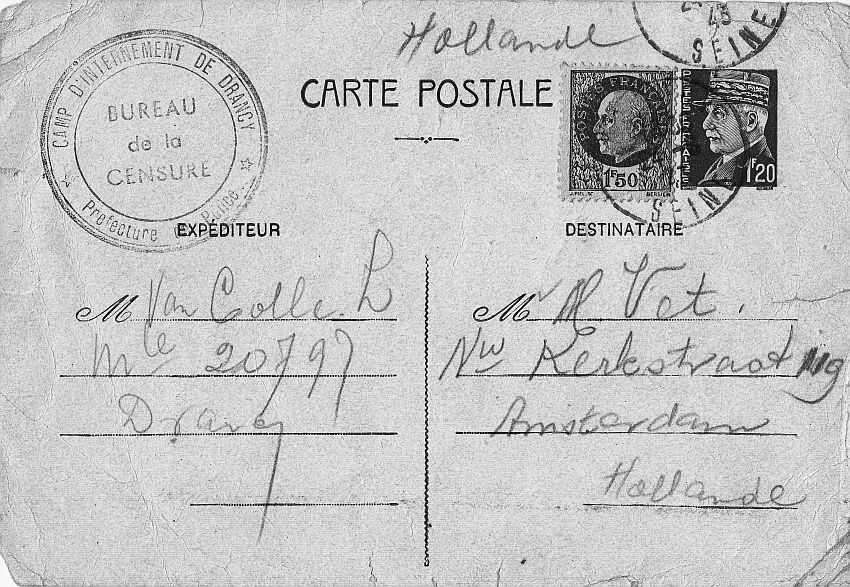 Hollande
43
SEINE
CAMP D'INTERNEMENT DE DRANCY
BUREAU
de la
CENSURE
Prefecture de Police
CARTE POSTALE
POSTES FRANÇAISES
1F50
POSTES FRANÇAISES
1F20
SEINE
EXPÉDITEUR
M Van Colle. L
Mle 20797
Drancy
DESTINATAIRE
M M Vet.
Nw Kerkstraat 119
Amsterdam
Hollande